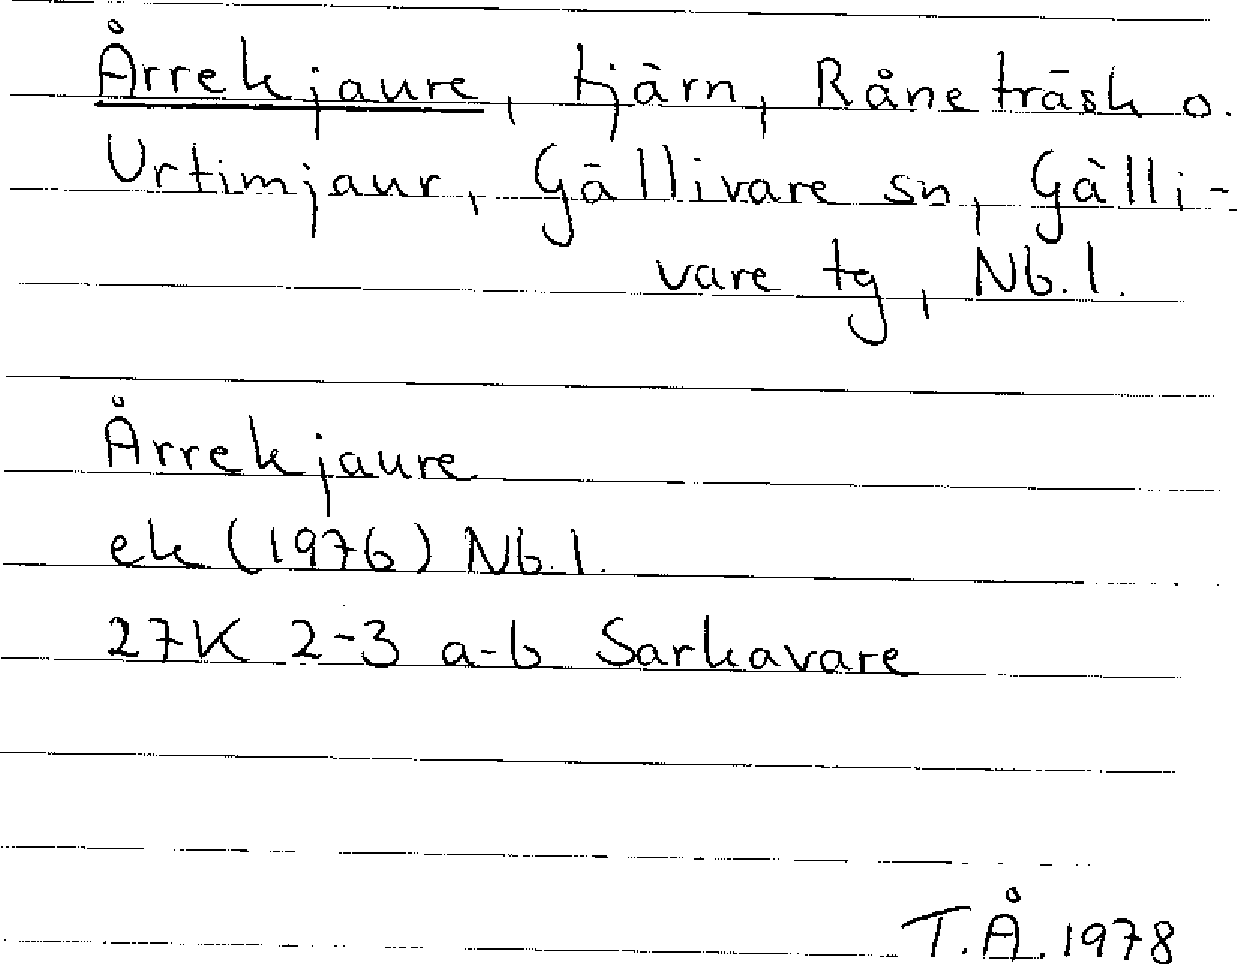 Årrekjaure, tjärn, Råneträsk o.
Urtimjaur, Gällivare sn, Gälli-
vare tg, Nb.l.
Årrekjaure
ek (1976) Nb.l.
27K 2-3 a-b Sarkavare
T.Å. 1978